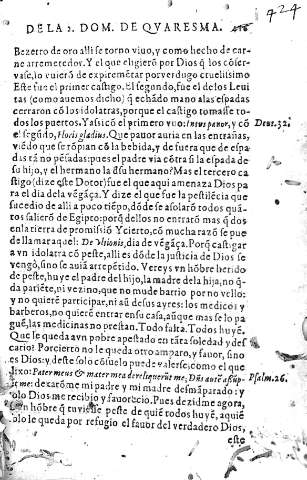 424
DE LA 2. DOM. DE QVARESMA.
Bezerro de oro alli se torno viuo, y como hecho de car-
ne arremetedor. Y el que eligierõ por Dios q̃ los cõser-
vase, lo vuierã de expiremẽtar por verdugo cruelissimo
Este fue el primer castigo. El segundo, fue el de los Leui
tas (como auemos dicho) q̃ echãdo mano a las espadas
cerraron cõ los idolatras, porque el castigo tomasse to-
dos los puertos. Y assi cõ el primero vuo: Intus pauor, y cõ
Deut. 32.
el segũdo, Foris gladius. Que pauor auria en las entrañas,
viẽdo que se rõpian cõ la bebida, y de fuera que de espa-
das tã no pẽsadas: pues el padre via cõtra si la espada de
su hijo, y el hermano la d̃ su hermano? Mas el tercero ca
stigo (dize este Dotor) fue el que aqui amenaza Dios pa
ra el dia de la vẽgãça. Y dize el que fue la pestilẽcia que
sucedio de alli a poco tiẽpo, dõde se asolarõ todos quã-
tos salierõ de Egipto: porq̃ dellos no entrarõ mas q̃ dos
en la tierra de promissiõ Y cierto, cõ mucha razõ se pue
de llamar aquel: De Vltionis, dia de vẽgãça. Porq̃ castigar
a vn idolatra cõ peste, alli es dõde la justicia de Dios se
vengò, sino se auia arrepẽtido. Vereys vn hõbre herido
de peste, huye el padre del hijo, la madre de la hija, no q̃-
da pariẽte, ni vezino, que no mude barrio por no vello:
y no quierẽ participar, ni aũ de sus ayres: los medicos y
barberos, no quierẽ entrar en su casa, aũque mas se lo pa
guẽ, las medicinas no prestan. Todo falta. Todos huyẽ.
Que le queda a vn pobre apestado en tãta soledad y des
cario? Por cierto no le queda otro amparo, y fauor, sino
es Dios: y deste solo cõsuelo puede valerse, como el que
dixo: Pater meus & mater mea dereliquerũt me, Dñs autẽ assũp-
Psalm. 26.
sit me: dexarõme mi padre y mi madre desmãparado: y
solo Dios me recibio y fauorecio. Pues dezidme agora,
a vn hõbre q̃ tuviesse peste de quiẽ todos huyẽ, aquiẽ
solo le queda por refugio el fauor del verdadero Dios,
este